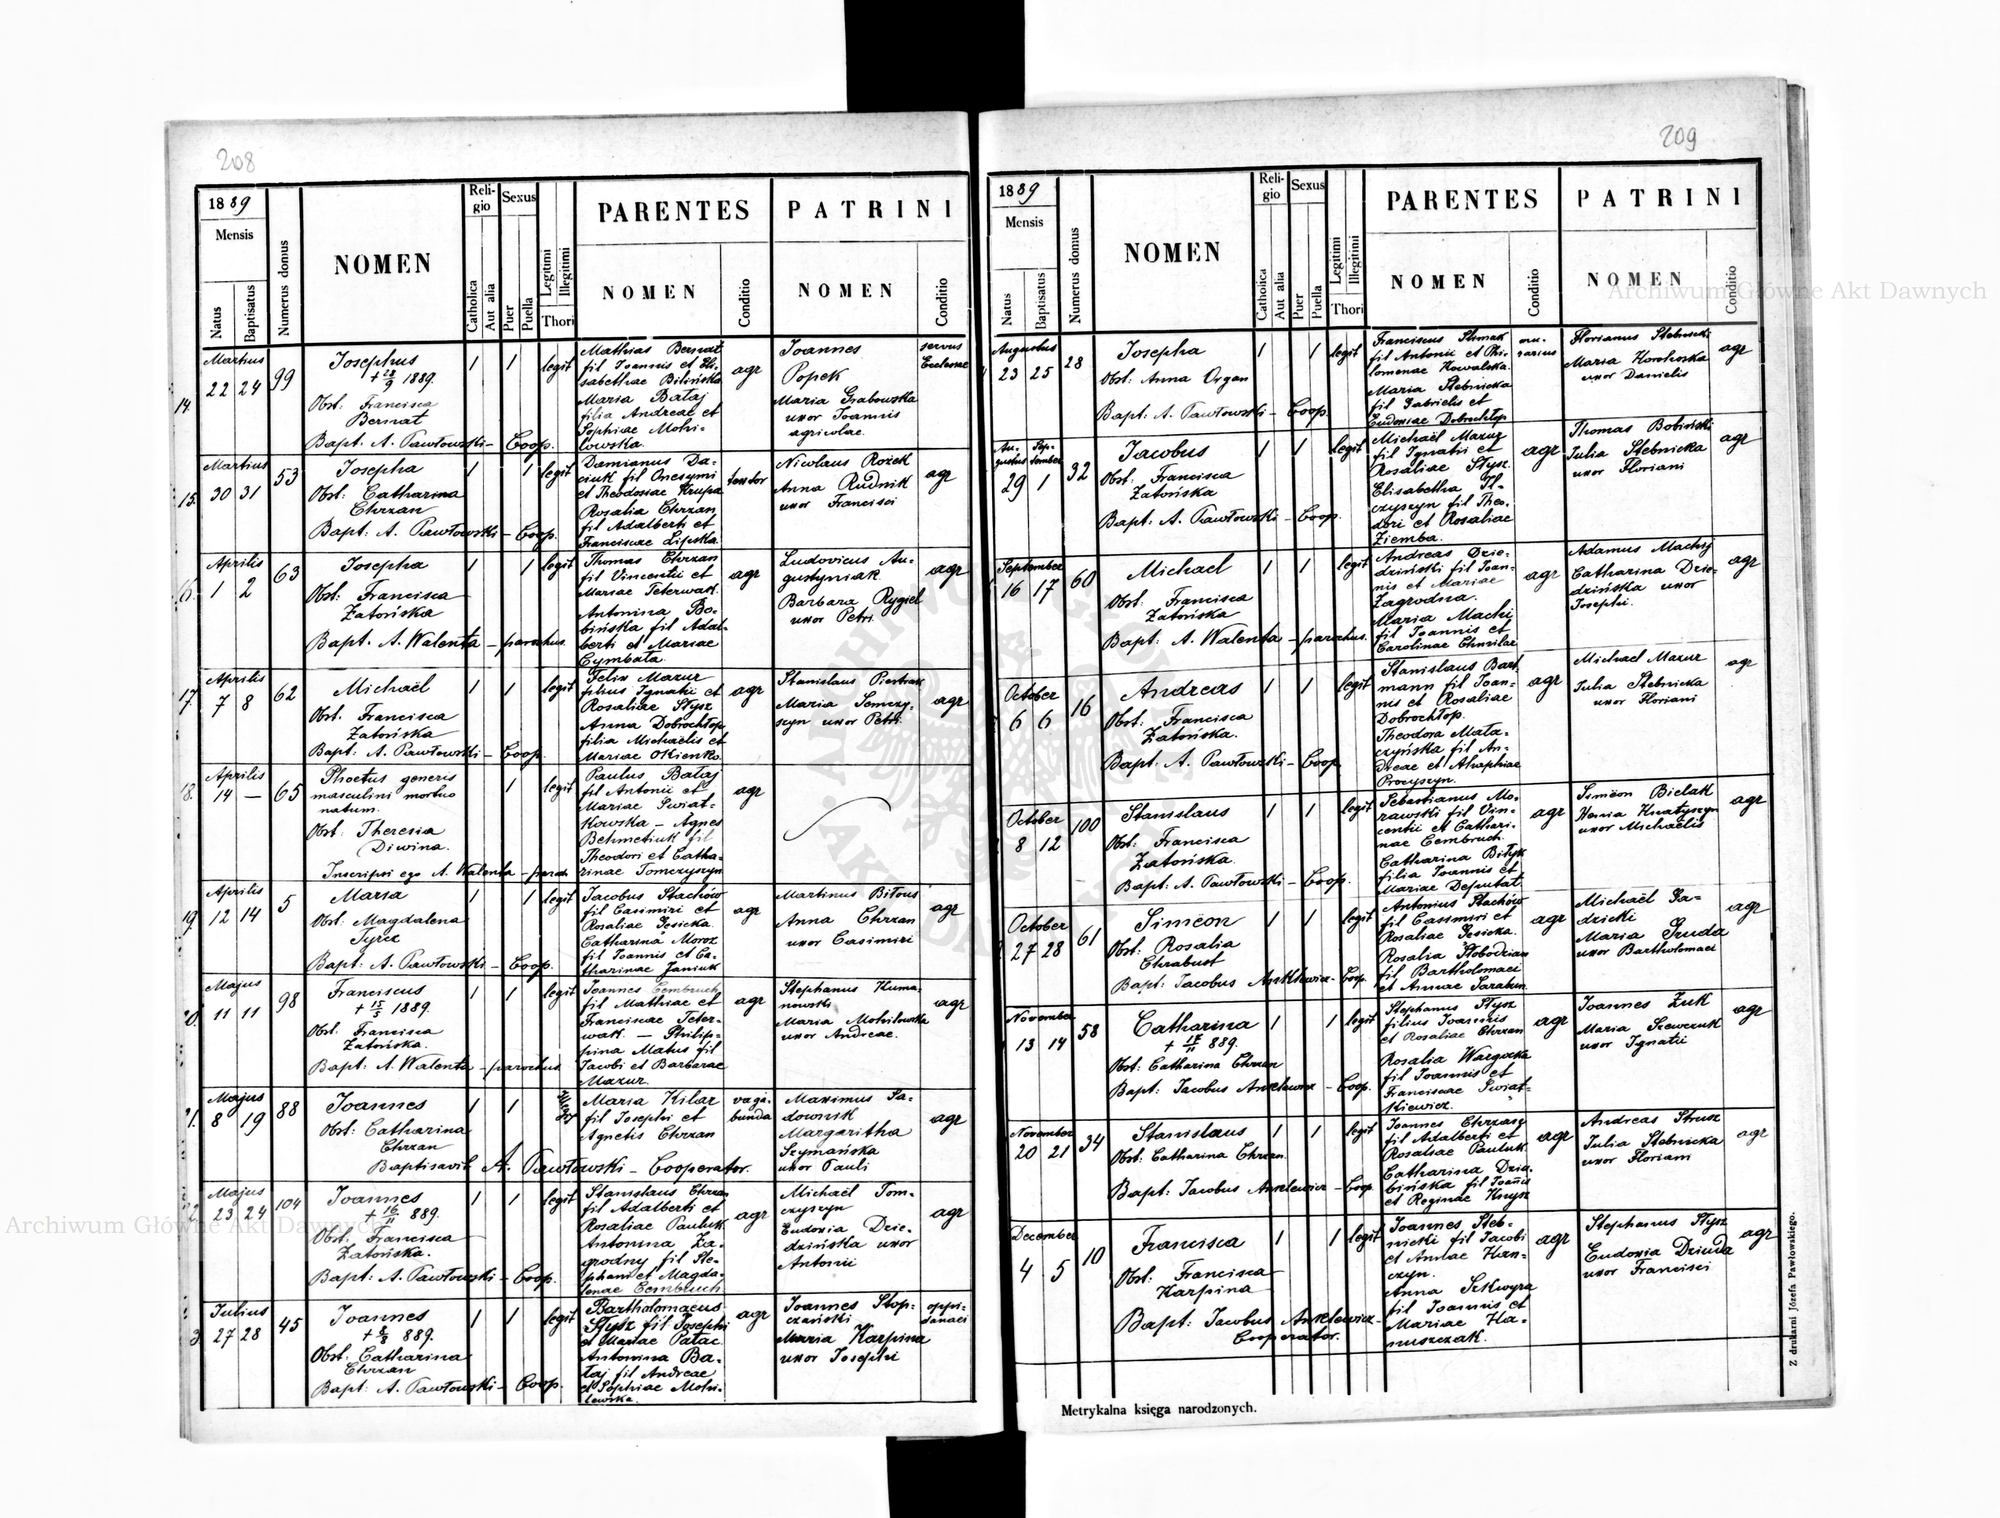 208
1889
Mensis
Natus
Baptisatus
Numerus domus
NOMEN
Religio
Catholica
Aut alia
Sexus
Puer
Puella
Legitimi
Illegitimi
Thori
PARENTES
NOMEN
Conditio
PATRINI
NOMEN
Conditio
14.
Martius
22 24
99
Josephus
+ 18/9 1889.
Obst: Francisca
Bernat
Bapt. A. Pawłowski – Coop.
1
1
legit
Mathias Bernat
fil Joannis et Eli-
sabethae Bilińska
Maria Bataj
filia Andreae et
Sophiae Mohi-
lowska
agr
Joannes
Popek
Maria Grabowska
uxor Joannis
agricolae.
servus
Ecclesiae
15.
Martius
30 31
53
Josepha
Obst: Catharina
Chrzan
Bapt: A. Pawłowski – Coop.
1
1
legit
Damianus Da-
ciuk fil Onesymi
et Theodosiae Krupa
Rosalia Chrzan
fil Adalberti et
Franciscae Lipska.
Nicolaus Rożek
Anna Rudnik
uxor Francisci
agr
Aprilis
1 2
63
Josepha
Obst: Francisca
Zatońska
Bapt. A. Walenta – parochus.
1
1
legit
Thomas Chrzan
fil Vincentii et
Mariae Teterwak.
Antonina Bo-
bińska fil Adal-
berti et Mariae
Cymbata.
agr
Ludovicus Au-
gustyniak
Barbara Rygiel
uxor Petri.
agr
17.
Aprilis
7 8
62
Michaël
Obst. Francisca
Zatońska
Bapt: A. Pawłowski – Coop.
1
1
legit
Felix Mazur
filius Ignatii et
Rosaliae Stysz
Anna Dobrochłop
filia Michaelis et
Mariae Okienko.
agr
Stanislaus Pietrzak
Maria Semczy-
szyn uxor Petri.
agr
18.
Aprilis
14 —
65
Phoetus generis
masculini mortuo
natum.
Obst: Theresia
Diwina.
Inscripsi ego A. Walenta – paroch
1
legit
Paulus Bataj
fil Antonii et
Mariae Swiat-
kowska – Agnes
Behmetiuk fil
Theodori et Catha-
rinae Tomczyszyn
agr
19.
Aprilis
12 14
5
Maria
Obst: Magdalena
Tyrcz
Bapt: A. Pawłowski – Coop.
1
1
legit
Jacobus Stachów
fil Casimiri et
Rosaliae Jesicka.
Catharina Moroz
fil Joannis et Ca-
tharinae Janiuk
agr
Martinus Bitous
Anna Chrzan
uxor Casimiri
agr
20.
Majus
11 11
98
Franciscus
+ 15/5 1889.
Obst: Francisca
Zatońska.
Bapt: A. Walenta – parochus
1
1
legit
Joannes Cembruch
fil Mathiae et
Franciscae Teter-
wak. — Philip-
pina Matus fil
Jacobi et Barbarae
Mazur.
agr
Stephanus Huma-
nowski
Maria Mohilowska
uxor Andreae.
agr
Majus
8 19
88
Joannes
Obst: Catharina
Chrzan
Baptisavit A. Pawłowski – Cooperator.
1
1
Maria Kilar
fil Josephi et
Agnetis Chrzan
vaga-
bunda
Maximus Sa-
downik
Margaritha
Szymańska
uxor Pauli
agr
Majus
23 24
104
Joannes
+ 16/11 889.
Obst: Francisca
Zatońska.
Bapt: A. Pawłowski – Coop.
1
1
legit
Stanislaus Chrzan
fil Adalberti et
Rosaliae Pauluk
Antonina Za-
grodny fil Ste-
phani et Magda-
lenae Cembruch
agr
Michaël Tom-
czyszyn
Eudoxia Dzie-
dzińska uxor
Antonii
agr
Julius
27 28
45
Joannes
+ 8/8 889.
Obst: Catharina
Chrzan
Bapt: A. Pawłowski – Coop.
1
1
legit
Bartholomaeus
Stysz fil Josephi
et Mariae Patac
Antonina Ba-
taj fil Andreae
et Sophiae Mohi-
lewska.
agr
Joannes Stop-
czański
Maria Karpina
uxor Josephi
oppi-
danaei
209
1889
Mensis
Natus
Baptisatus
Numerus domus
NOMEN
Religio
Catholica
Aut alia
Sexus
Puer
Puella
Legitimi
Illegitimi
Thori
PARENTES
NOMEN
Conditio
PATRINI
NOMEN
Conditio
Augustus
23 25
28
Josepha
Obst: Anna Organ
Bapt: A. Pawłowski – Coop.
1
1
legit
Franciscus Stimak
fil Antonii et Phi-
lomenae Kowalska.
Maria Stebnicka
fil Gabrielis et
Eudoxiae Dobrochłop
Florianus Stebnicki
Maria Horohoska
uxor Danielis
agr
Au- Sep-
gustus tember
29 1
32
Jacobus
Obst: Francisca
Zatońska
Bapt: A. Pawłowski – Coop.
1
1
legit
Michaël Mazur
fil Ignatii et
Rosaliae Stysz.
Elisabetha
czyszyn fil Theo-
dori et Rosaliae
Ziemba.
agr
Thomas Bobiński
Julia Stebnicka
uxor Floriani
agr
September
16 17
60
Michael
Obst: Francisca
Zatońska
Bapt: A. Walenta – parochus.
1
1
legit
Andreas Dzie-
dziński fil Joan-
nis et Mariae
Zagrodna.
Maria Machi
fil Joannis et
Carolinae Chmilar
agr
Adamus Machij
Catharina Dzie-
dzińska uxor
Josephi.
agr
October
6 6
16
Andreas
Obst: Francisca
Zatońska.
Bapt: A. Pawłowski – Coop
1
1
legit
Stanislaus Bart-
mann fil Joan-
nis et Rosaliae
Dobrochłop.
Theodora Mata-
czyńska fil An-
dreae et Ahaphiae
Procyszyn.
agr
Michael Mazur
Julia Stebnicka
uxor Floriani
agr
October
8 12
100
Stanislaus
Obst: Francisca
Zatońska.
Bapt: A. Pawłowski – Coop.
1
1
legit
Sebastianus Mo-
rawski fil Vin-
centii et Cathari-
nae Cembruch.
Catharina Bityk
filia Joannis et
Mariae Deputat
agr
Simëon Bielak
Hania Hnatyszyn
uxor Michaëlis
agr
October
27 28
61
Simëon
Obst: Rosalia
Chrabust
Bapt: Jacobus Anklewicz – Coop.
1
1
legit
Antonius Stachów
fil Casimiri et
Rosaliae Jesicka.
Rosalia Stobodzian
fil Bartholomaei
et Annae Saraban.
agr
Michaël Ga-
dzicki
Maria Gruda
uxor Bartholomaei
agr
November
13 14
58
Catharina
+ 17/11 889.
Obst: Catharina Chrzan
Bapt: Jacobus Anklewicz – Coop.
1
1
legit
Stephanus Stysz
filius Joannis
et Rosaliae Chrzan
Rosalia Wargocka
fil Joannis et
Franciscae Swiat-
kiewicz.
agr
Joannes Żuk
Maria Szewczuk
uxor Ignatii
agr
November
20 21
34
Stanislaus
Obst: Catharina Chrzan.
Bapt: Jacobus Anklewicz – Coop.
1
1
legit
Joannes Chrzan
fil Adalberti et
Rosaliae Pauluk.
Catharina Dzia-
bińska fil Joannis
et Reginae Knysz
agr
Andreas Strusz
Julia Stebnicka
uxor Floriani
agr
December
4 5
10
Francisca
Obst: Francisca
Karpina
Bapt: Jacobus Anklewicz –
Cooperator.
1
1
legit
Joannes Steb-
nicki fil Jacobi
et Annae Han-
czyn.
Anna Szkwyra
fil Joannis et
Mariae Ha-
nuszczak.
agr
Stephanus Stysz
Eudoxia Dziuda
uxor Francisci
agr
Metrykalna księga narodzonych.
Z drukarni Józefa Pawłowskiego.
Archiwum Główne Akt Dawnych
Archiwum Główne Akt Dawnych